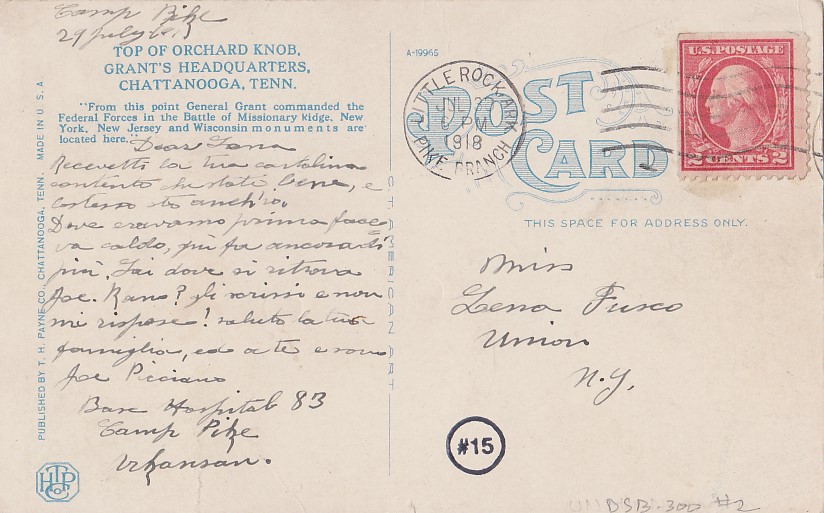 Camp Pike
29 July 1918
TOP OF ORCHARD KNOB,
GRANT'S HEADQUARTERS,
CHATTANOOGA, TENN.
"From this point General Grant commanded the
Federal Forces in the Battle of Missionary Ridge. New
York, New Jersey and Wisconsin monuments are
located here."
Dear Lena
Recevetti la tua cartolina
contento che stati bene, e
lo stesso sto anch'io.
Dove eravamo prima face
va caldo, qui fa ancora di
più. Sai dove si ritrova
Joe. ? gli scrissi e non
mi rispose! saluto la tua
famiglia, ed a te e sono
Joe Picciano
Base Hospital 83
Camp Pike
Arkansas.
PUBLISHED BY T. H. PAYNE CO., CHATTANOOGA, TENN. MADE IN U. S. A.
HTP CO
C.T. AMERICAN ART
A-19965
POST
CARD
THIS SPACE FOR ADDRESS ONLY.
LITTLE ROCK, ARK.
JUL
6 PM
1918
PIKE BRANCH
U.S. POSTAGE
2 CENTS 2
Miss
Lena Fusco
Union
N.Y.
#15
DSB-300 #2